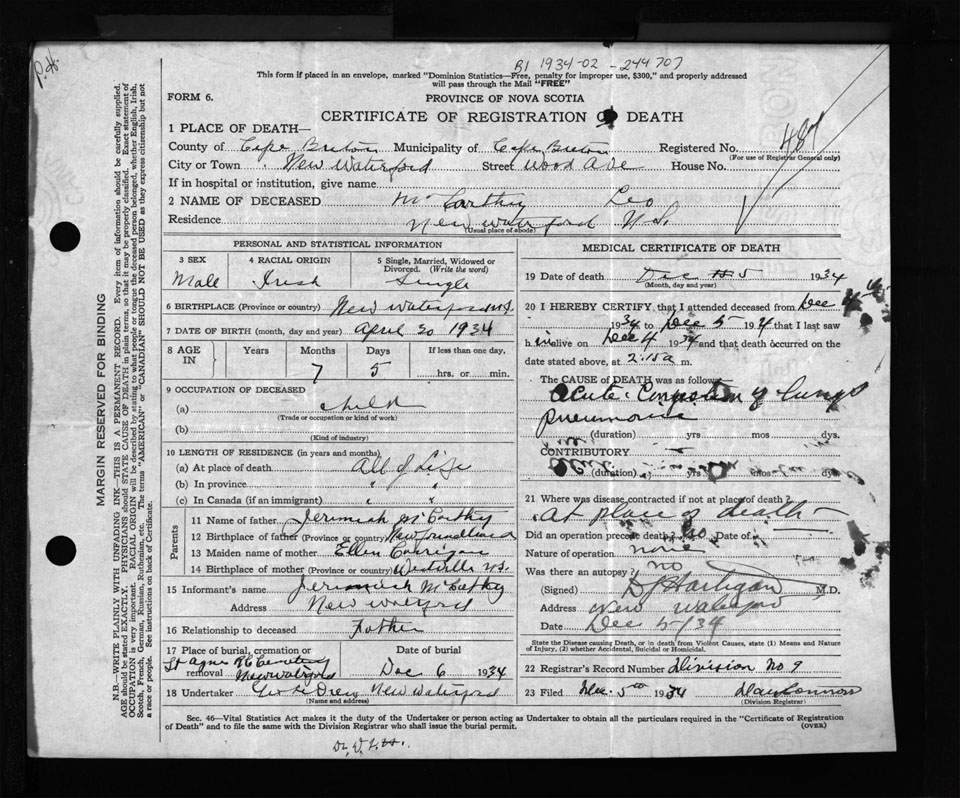 P.H.
B1 1934-02-244707
This form if placed in an envelope, marked "Dominion Statistics—Free, penalty for improper use, $300," and properly addressed
will pass through the Mail "FREE"
FORM 6.
PROVINCE OF NOVA SCOTIA
CERTIFICATE OF REGISTRATION OF DEATH
1 PLACE OF DEATH—
County of Cape Breton Municipality of Cape Breton Registered No. 487
(For use of Registrar General only)
City or Town New Waterford Street Wood Ave House No.
If in hospital or institution, give name
2 NAME OF DECEASED McCarthy Leo
Residence New Waterford N.S.
(Usual place of abode)
PERSONAL AND STATISTICAL INFORMATION
3 SEX 4 RACIAL ORIGIN 5 Single, Married, Widowed or
Divorced. (Write the word)
Male Irish Single
6 BIRTHPLACE (Province or country) New Waterford N.S.
7 DATE OF BIRTH (month, day and year) April 30 1934
8 AGE IN Years Months Days If less than one day,
7 5 hrs. or min.
9 OCCUPATION OF DECEASED
(a) child
(Trade or occupation or kind of work)
(b)
(Kind of industry)
10 LENGTH OF RESIDENCE (in years and months)
(a) At place of death All of Life
(b) In province " "
(c) In Canada (if an immigrant) " "
Parents
11 Name of father Jerimiah McCarthy
12 Birthplace of father (Province or country) Newfoundland
13 Maiden name of mother Ellen Corrigan
14 Birthplace of mother (Province or country) Westville N.S.
15 Informant's name Jeremiah McCarthy
Address New Waterford
16 Relationship to deceased Father
17 Place of burial, cremation or Date of burial
removal St Agnes RC Cemetery
New Waterford Dec 6 1934
18 Undertaker Drew New Waterford
(Name and address)
MEDICAL CERTIFICATE OF DEATH
19 Date of death Dec 5 1934
(Month, day and year)
20 I HEREBY CERTIFY, that I attended deceased from Dec 4
1934 to Dec 5 1934 that I last saw
him alive on Dec 4 1934 and that death occurred on the
date stated above, at 2:15 a m.
The CAUSE of DEATH was as follows
Acute Congestion of lungs
Pneumonia
(duration) yrs mos dys.
CONTRIBUTORY
(duration) yrs mos dys.
21 Where was disease contracted if not at place of death?
At place of death
Did an operation precede death? no Date of
Nature of operation none
Was there an autopsy? no
(Signed) DJ Hartigan M.D.
Address New Waterford
Date Dec 5/34
State the Disease causing Death, or in death from Violent Causes, state (1) Means and Nature
of Injury, (2) whether Accidental, Suicidal or Homicidal.
22 Registrar's Record Number Division No 9
23 Filed Dec. 5th 1934 Dan Connors
(Division Registrar)
Sec. 46—Vital Statistics Act makes it the duty of the Undertaker or person acting as Undertaker to obtain all the particulars required in the "Certificate of Registration
of Death" and to file the same with the Division Registrar who shall issue the burial permit. (OVER)
MARGIN RESERVED FOR BINDING
N.B.—WRITE PLAINLY WITH UNFADING INK—THIS IS A PERMANENT RECORD. Every item of information should be carefully supplied.
AGE should be stated EXACTLY. PHYSICIANS should STATE CAUSE OF DEATH in plain terms, so that it may be properly classified. Exact statement of
OCCUPATION is very important. RACIAL ORIGIN will be described by stating to what people or tongue the deceased person belonged, whether English, Irish,
Scotch, French, German, Russian, Ruthenian, etc. The terms "AMERICAN" or "CANADIAN" SHOULD NOT BE USED as they express citizenship but not
a race or people. See instructions on back of Certificate.